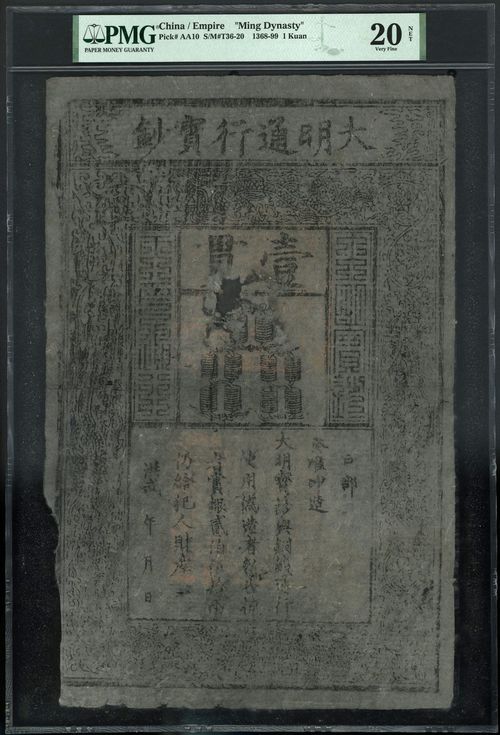 PMG
PAPER MONEY GUARANTY
China / Empire "Ming Dynasty"
Pick# AA10 S/M#T36-20 1368-99 1 Kuan
20 NET
Very Fine
大明通行寶鈔
壹貫
戶部
奏准印造
大明寶鈔與銅錢通行
使用偽造者斬告捕
者賞銀貳佰伍拾兩
仍給犯人財產
洪武 年 月 日